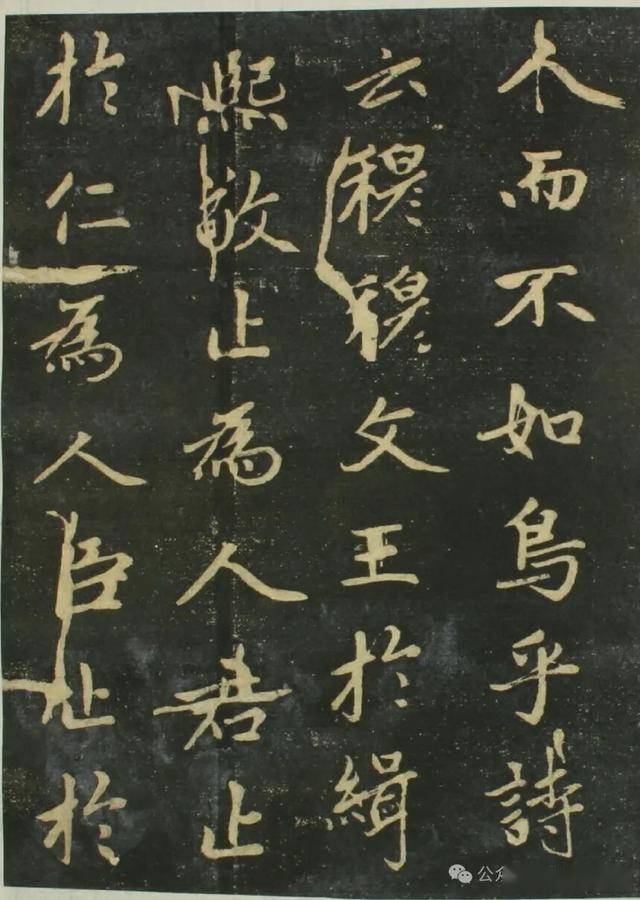 人而不如鳥乎詩
云穆穆文王於緝
熙敬止為人君止
於仁為人臣止於
公